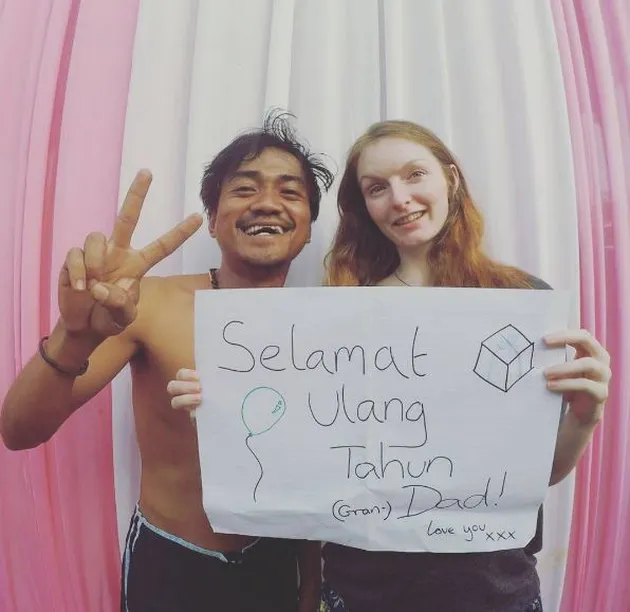 Selamat
Ulang
Tahun
(Gran-) Dad!
love you xxx